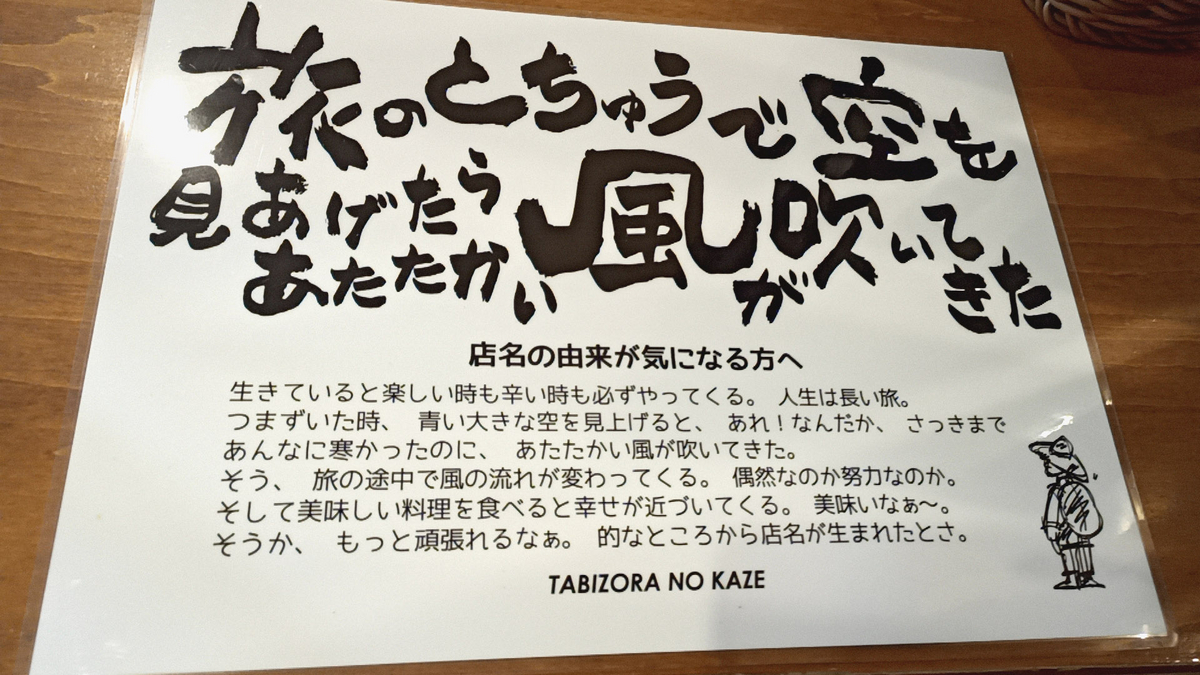 旅のとちゅうで空を
見あげたら
あたたかい風が吹いてきた
店名の由来が気になる方へ
生きていると楽しい時も辛い時も必ずやってくる。 人生は長い旅。
つまずいた時、 青い大きな空を見上げると、 あれ!なんだか、 さっきまで
あんなに寒かったのに、 あたたかい風が吹いてきた。
そう、 旅の途中で風の流れが変わってくる。 偶然なのか努力なのか。
そして美味しい料理を食べると幸せが近づいてくる。 美味いなぁ~。
そうか、 もっと頑張れるなぁ。 的なところから店名が生まれたとさ。
TABIZORA NO KAZE